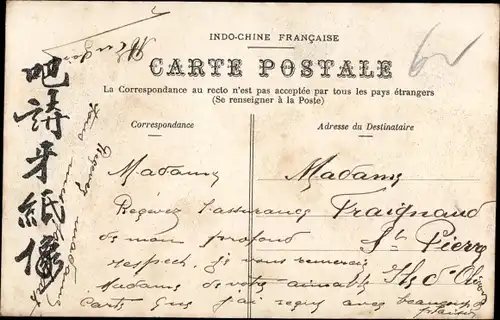 INDO-CHINE FRANÇAISE
CARTE POSTALE
La Correspondance au recto n'est pas acceptée par tous les pays étrangers
(Se renseigner à la Poste)
Correspondance
Madame
Recevez l'assurance
de mon profond
respect, je vous remercie
Madame de votre aimable
carte que j'ai reçu avec beaucoup de
plaisir
Adresse du Destinataire
Madame
Fraignaud
St Pierre
Ile d'Oléron
吧
請
牙
紙